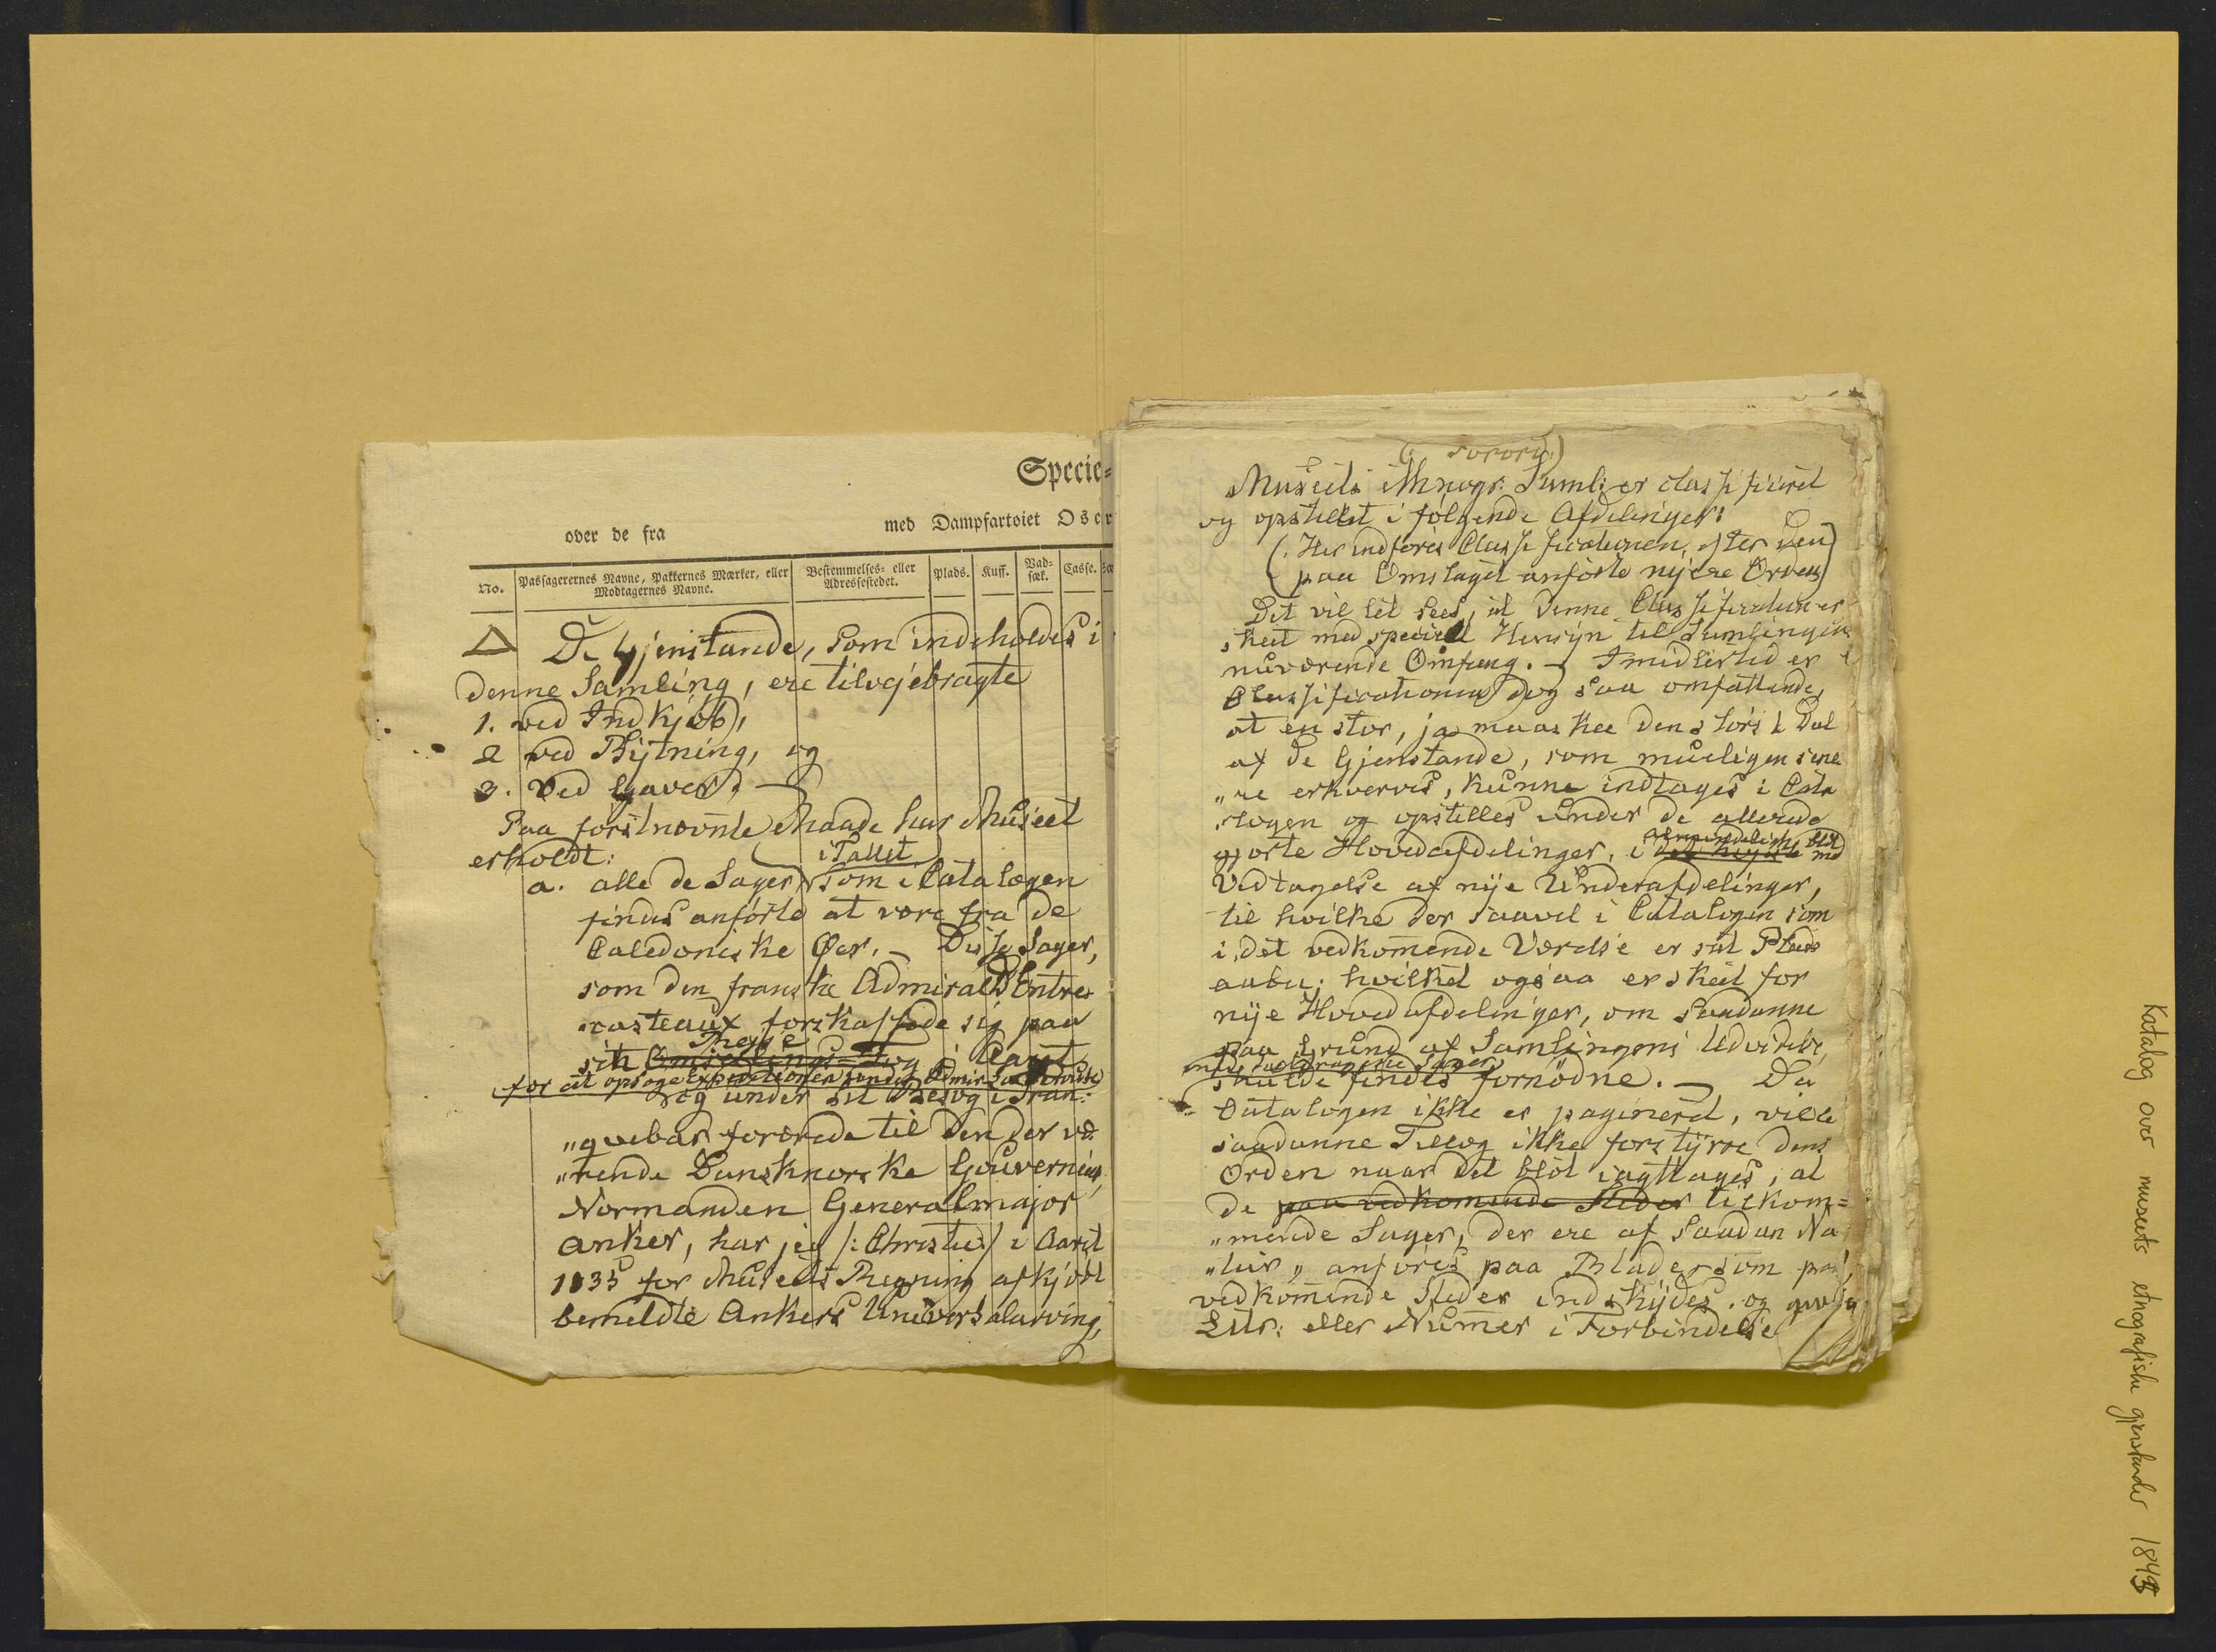 Specie=
over de fra med Dampfartøiet Osc
No. Passagerernes Navne, Pakkernes Mærker, eller Modtagernes Navne. Bestemmelses- eller Adressestedet. Plads. Kuff. Vad-sæk. Casse.
De Gjenstande, som indeholdes i
denne Samling, ere tilvejebragte
1. ved Indkjøb,
2 ved Bytning, og
3. ved Gaver. —
Paa förstnævnte Maade har Museet
erholdt: i Tallet
a. alle de Sager, som i Catalogen
findes anförte at være fra de
Caledoniske Øer. — Disse Sager,
som den franske Admiral D'Entre
casteaux forskaffede sig paa
Rejse
sin Omseilings=Tog i Aaret
for at opsøge Expeditionen under Admir
og under sit Besög i Tran=
„quebar forærede til den der væ
„rende Dansknorske Gouverneur,
Normanden Generalmajor
Anker, har jeg /: Christie :/ i Aaret
1835 for Museets Regning afkjøbt
bemeldte Ankers Universalarving,
(: Forord :)
Museets ethnogr: Saml: er classificeret
og opstillet i følgende Afdelinger:
(: Her indføres Classificationen, efter den
paa Omslaget anförte nyere Orden)
Det vil let sees, at denne Classification er
skeet med speciell Hensyn til Samlingens
nuværende Omfang. — Imidlertid er
Classificationen dog saa omfattende,
at en stor, ja maaskee den störste Del
af de Gjenstande, som mueligen sene
„re erhverves, kunne indtages i Cata
„logen og opstilles under de allerede
Almindelighed blot
gjorte Hovedafdelinger, i det höjeste med
Vedtagelse af nye Underafdelinger,
til hvilke der saavel i Catalogen som
i det vedkommende Værelse er sat Plads
aaben; hvilket ogsaa er skeet for
nye Hovedafdelinger, om saadanne
paa Grund af Samlingens Udvidelse
skulde findes fornödne. — Da
Catalogen ikke er pagineret, vilde
saadanne Tillæg ikke forstyrre dens
Orden naar det blot iagttages, at
de paa vedkommende Steder tilkom=
„mende Sager, der ere af saadan Na
„tur, anføres paa Blade som paa
vedkommende Steder indskydes. og
Litr: eller Numer i Forbindelse
Katalog over museets etnografiske gjenstander 184